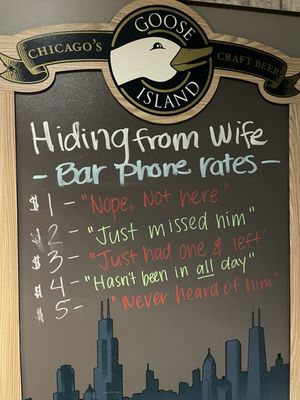 GOOSE
CHICAGO'S CRAFT BEER
ISLAND
Hiding from Wife
- Bar Phone rates -
$1 - "Nope, Not here"
$2 - "Just missed him"
$3 - "Just had one & left"
$4 - "Hasn't been in all day"
$5 - "Never heard of him"